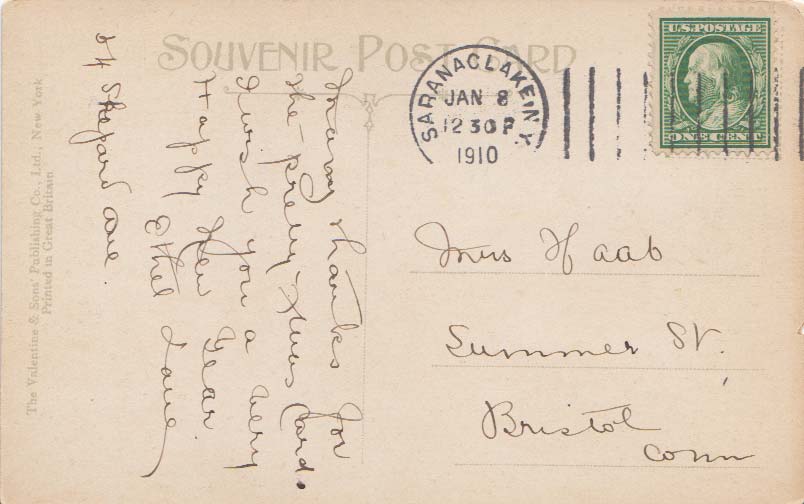 SOUVENIR POST CARD
The Valentine & Sons' Publishing Co., Ltd., New York
Printed in Great Britain
Many thanks for
the pretty Xmas Card.
I wish you a very
Happy New Year.
Ethel Lane
24 Shepard Ave.
SARANAC LAKE, N.Y.
JAN 8
12 30 P
1910
U.S. POSTAGE
ONE CENT
Miss Haab
Summer St.
Bristol
Conn